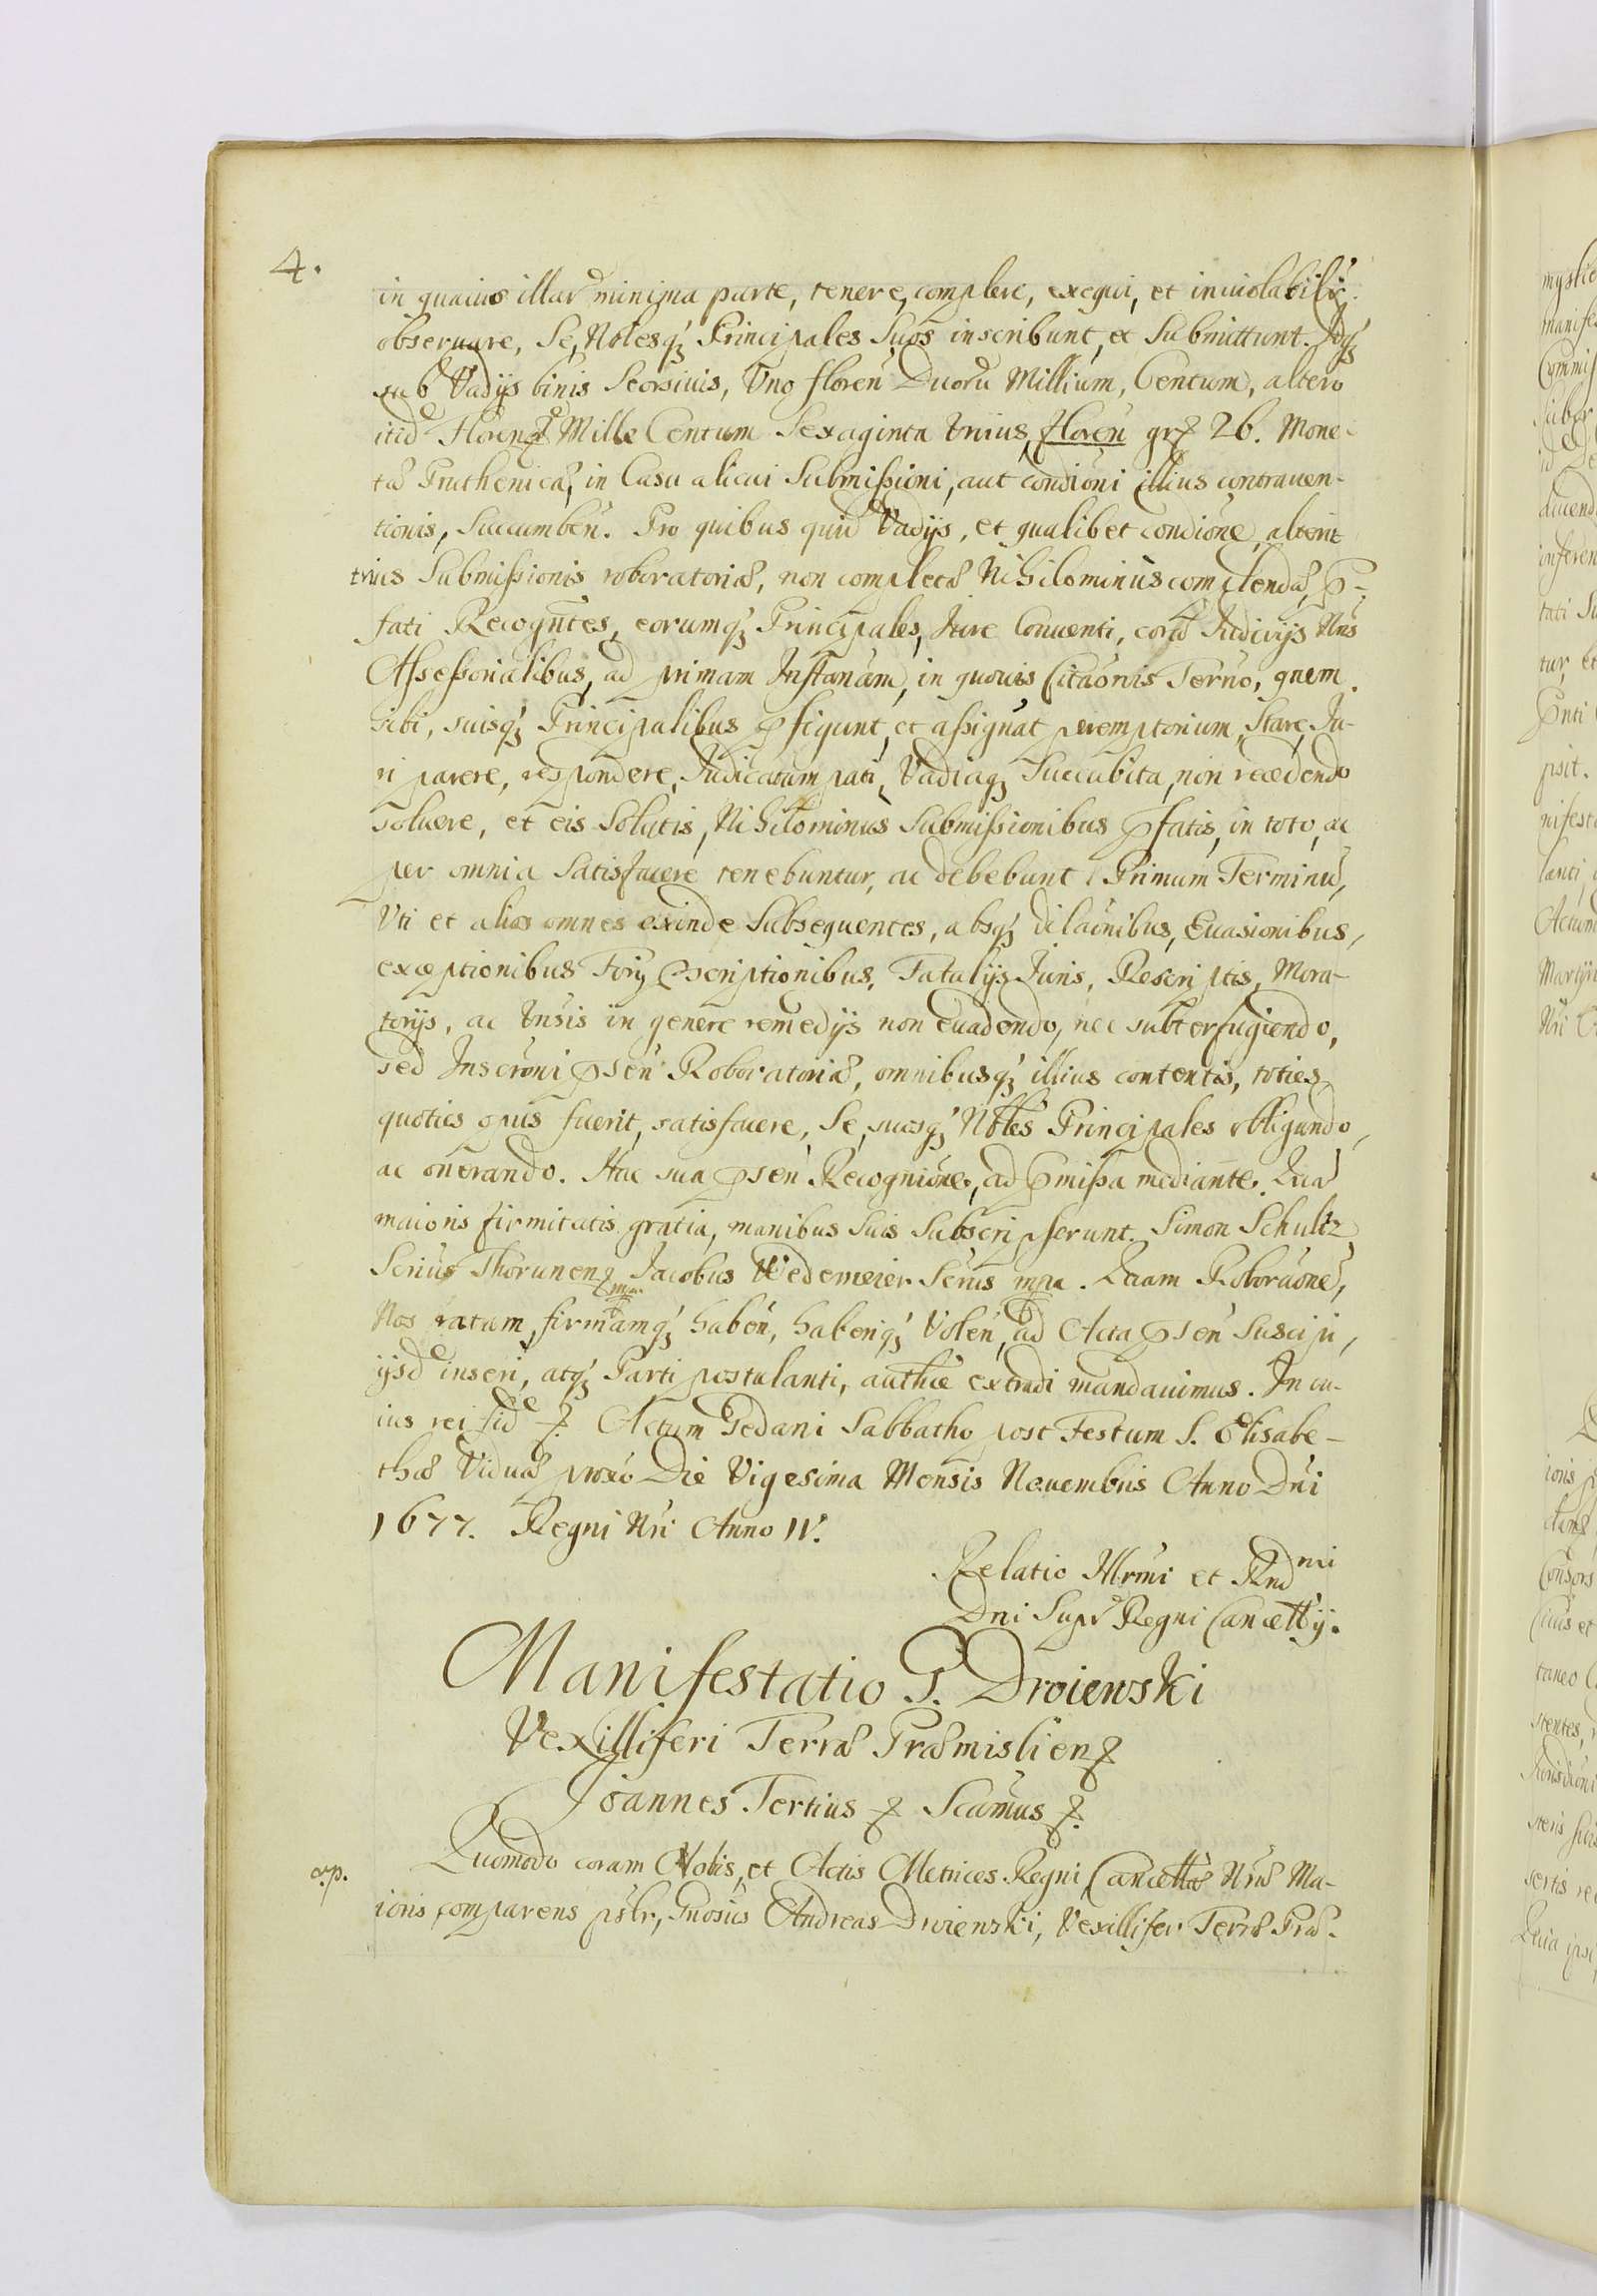 4.
in quavis illar minima parte, tenere, complere, exequi, et inviolabilr
observare, Se, Noblesq Principales Suos inscribunt, et Submittunt. Idq
sub Vadys binis Seorsivis, Uno floren Duoru Millium, Centum, altero
itid Floren Mille Centum Sexaginta Unius, floren gr 26. Mone-
tæ Pruthenicæ, in Casu alicui Submissioni, aut condioni illius contraven-
tionis, Succumben. Pro quibus quid Vadys, et qualibet condione, alterut
trius Submissionis roboratoriæ, non completæ Nihilominus complendæ, P-
fati Recogntes, eorumq Principales, Iure Conventi, cora Iudicys Nris
Assessorialibus, ad primam Instanam, in quovis Citaonis Terno, quem
sibi, suisq Principalibus pfigunt, et assignat peremptorium, Stare, Iu-
ri parere, respondere, Iudicatum pati, Vadiaq Succubita, non recedendo
solvere, et eis Solutis, Nihilominus Submissionibus pfatis, in toto, ac
per omnia Satisfacere tenebuntur, ac debebunt. Primum Terminu,
Uti et alios omnes exinde Subsequentes, absq dilaonibus, Evasionibus,
exceptionibus Fori, pscriptionibus, Fatalijs Iuris, Rescriptis, Mora-
torijs, ac Unsis in genere remedijs non Evadendo, nec subterfugiendo,
sed Inscroni psen Roboratoriæ, omnibusq illius contentis, toties
quoties opus fuerit, satisfacere, Se, suosq Nobles Principales obligando,
ac onerando. Hac sua psen Recognione, ad pmissa mediante. Qua
maioris firmitatis gratia, manibus Suis Subscripserunt. Simon Schultz
Scrius Thorunen mpa. Jacobus Wedemeier Scrius mpa. Quam Roboraone,
Nos ratam, firmamq haben, haberiq Volen, ad Acta psen Suscipi,
ijsd inseri, atq Parti postulanti, authce extradi mandavimus. In cu-
ius rei fid. Actum Gedani Sabbatho post Festum S. Elisabe-
thæ Viduæ proxo Die Vigesima Mensis Novembris Anno Dni
1677. Regni Nri Anno IV.
Relatio Illrmi et Rndmi
Dni Supr Regni Cancellrij.
Manifestatio G. Droiewski
Vexilliferi Terræ Præmislien
Joannes Tertius Scamus
op.
Quomodo coram Nobis, et Actis Metrices Regni Cancellæ Nræ Ma-
ioris comparens pslr, Gnosus Andreas Droiewski, Vexillifer Terræ Præ-